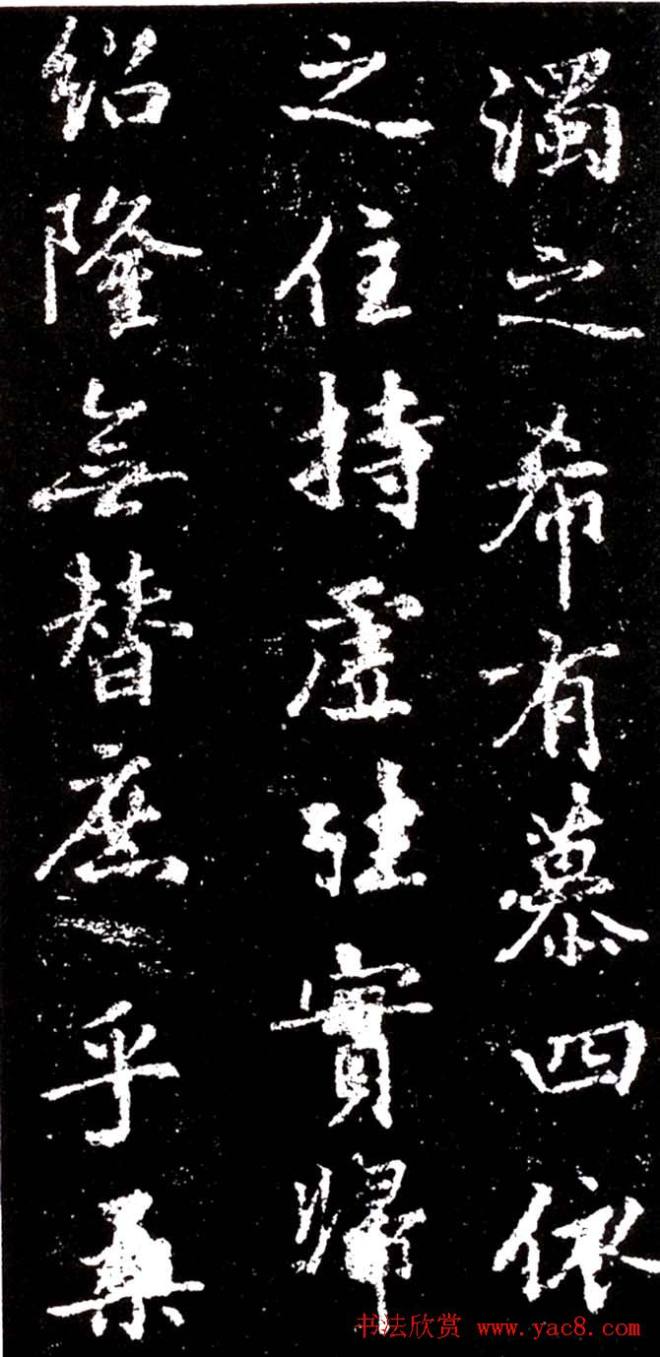 濁之希有慕四依
之住持虛往實歸
紹隆無替庶乎桑
书法欣赏 www.yac8.com